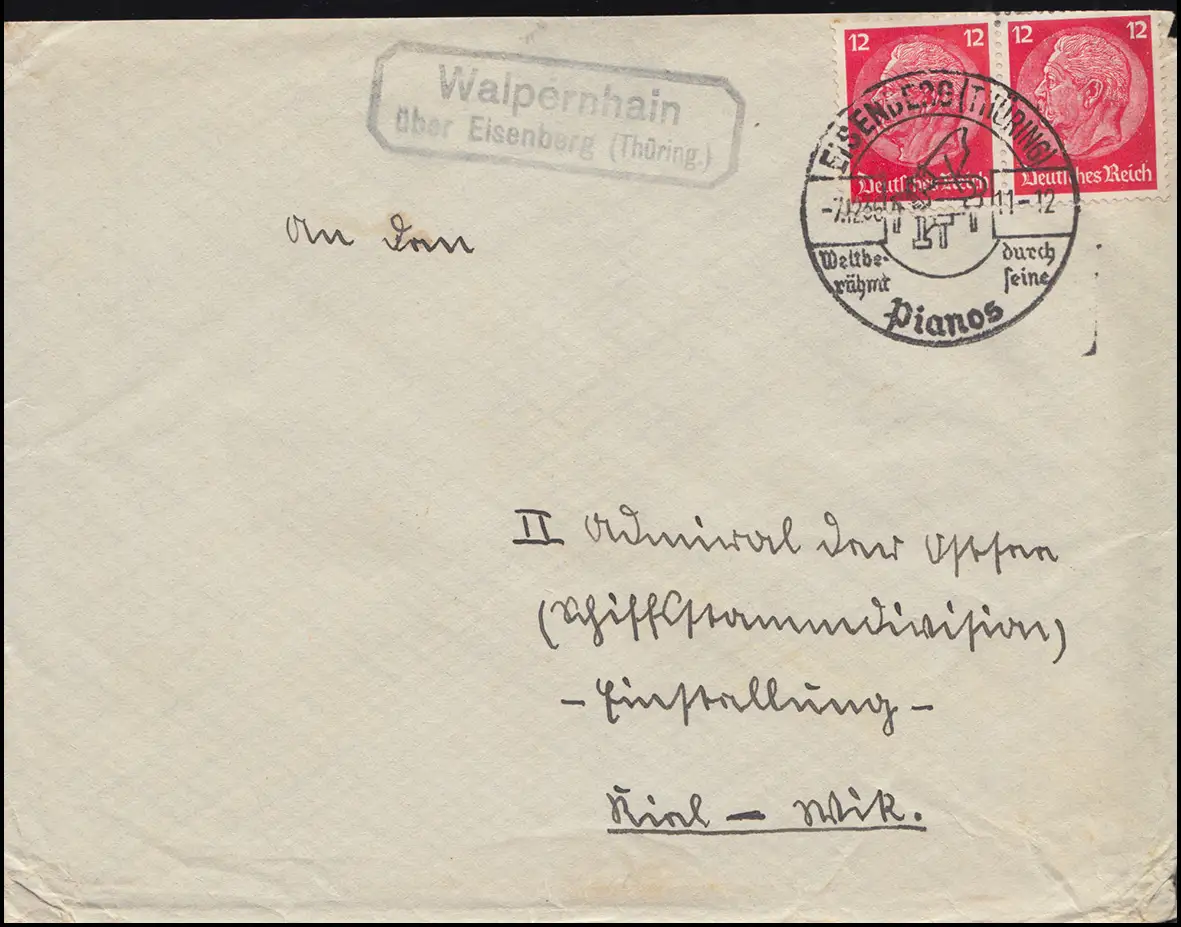 Walpernhain
über Eisenberg (Thüring.)
12 12 12 12
Deutsches Reich Deutsches Reich
EISENBERG (THÜRING)
-7.12.36 11-12
Weltbe- durch
rühmt seine
Pianos
An den
II Admiral der Ostsee
(Schiffsstammdivision)
- Einstellung -
Kiel - Wik.